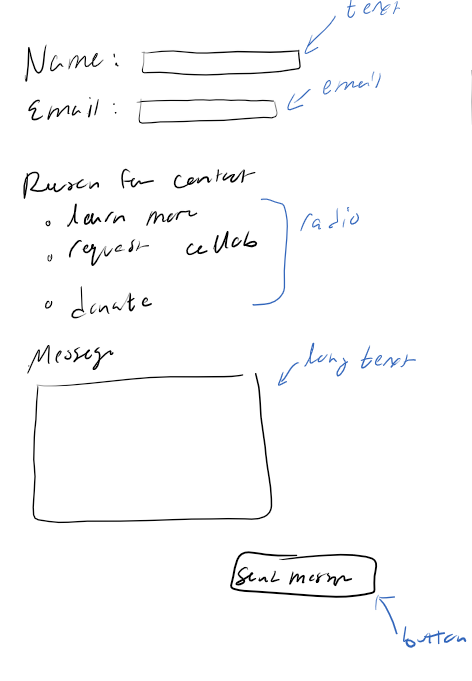 text
Name:
Email:
email
Reason for contact
learn more
radio
request collab
donate
Message
long text
Send message
button